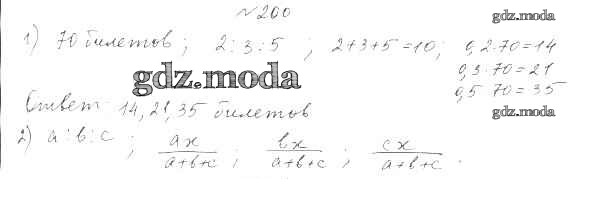 №200
gdz.moda
1) 70 билетов; 2:3:5; 2+3+5=10; 0,2·70=14
0,3·70=21
gdz.moda
0,5·70=35
Ответ: 14, 21, 35 билетов
gdz.moda
2) a:b:c; ax/(a+b+c); bx/(a+b+c); cx/(a+b+c).